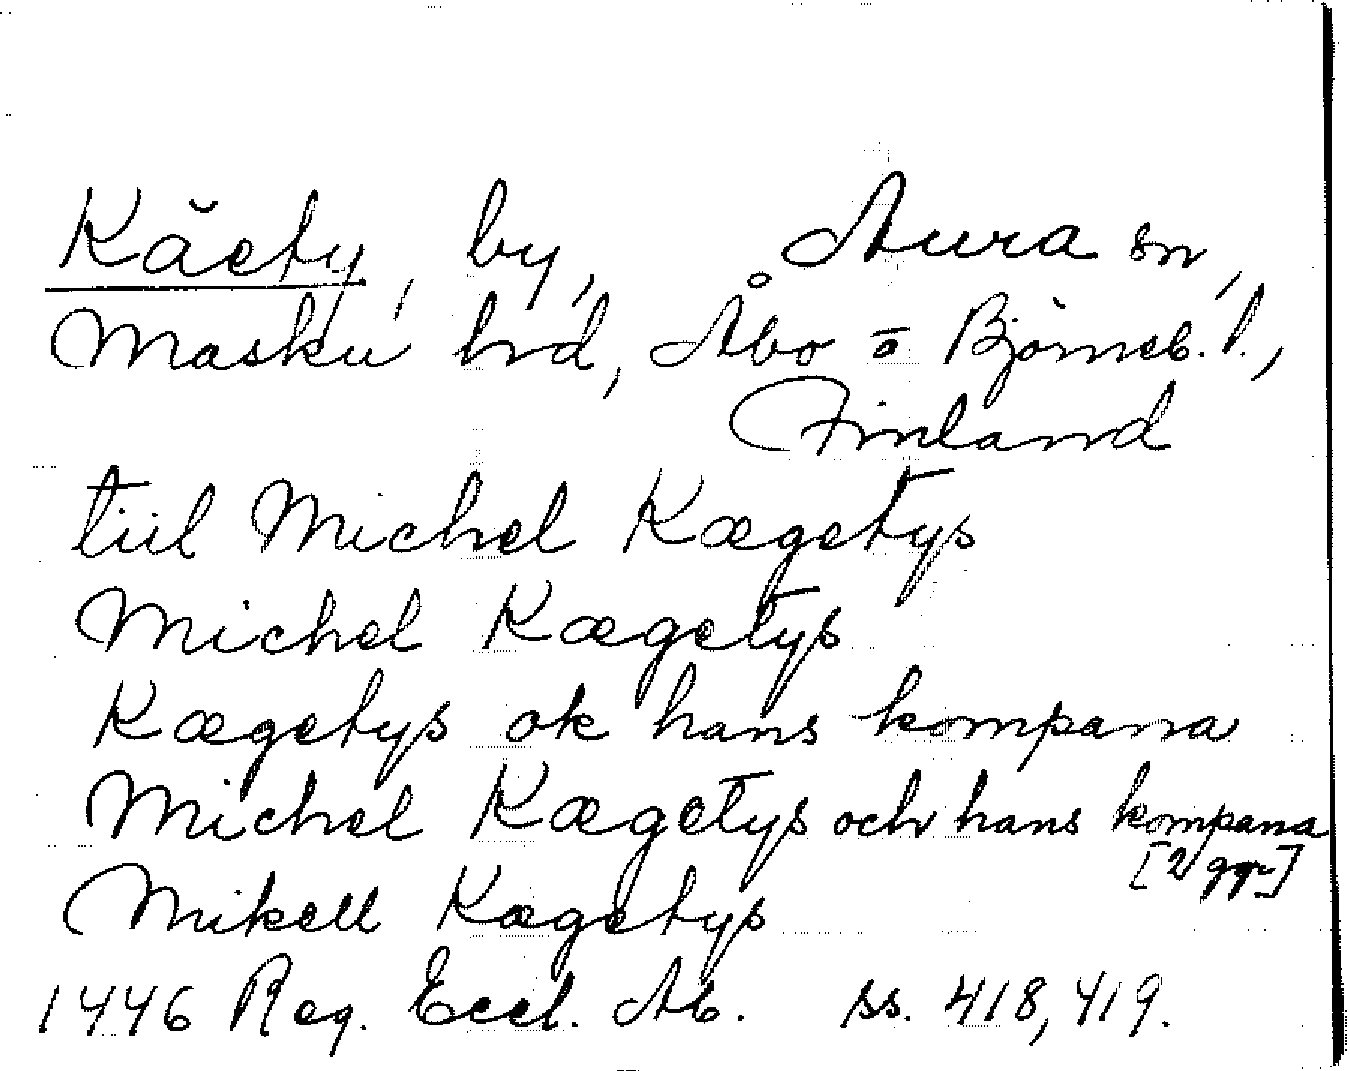 Käety, by, Aura sn,
Masku hrd, Åbo o Björneb. l.,
Finland
tiil Michel Kægetys
Michel Kægetys
Kægetys ok hans kompana
Michel Kægetys och hans kompana
[2 ggr]
Mikell Kægetys
1446 Reg. Eccl. Ab. ss. 418, 419.